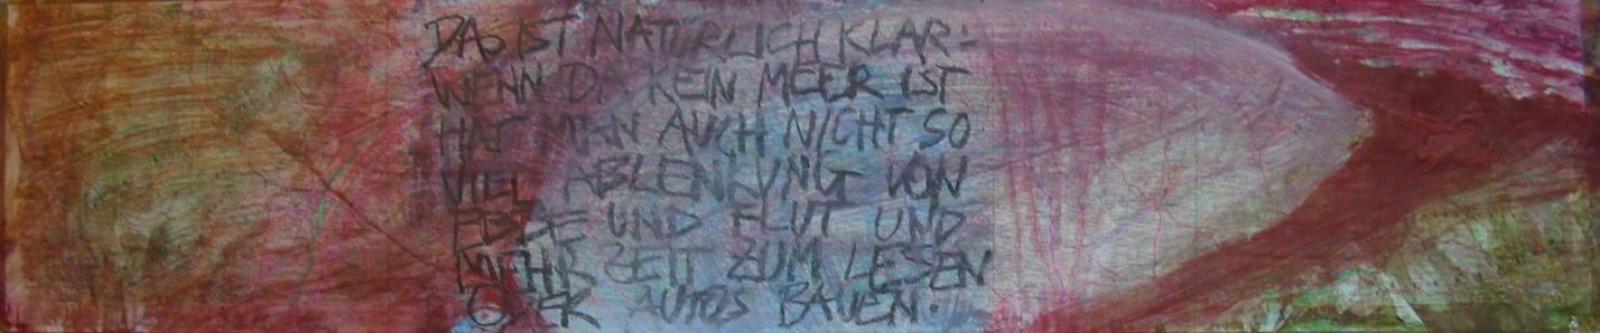 DAS IST NATÜRLICH KLAR:
WENN DA KEIN MEER IST
HAT MAN AUCH NICHT SO
VIEL ABLENKUNG VON
EBBE UND FLUT UND
MEHR ZEIT ZUM LESEN
ODER AUTOS BAUEN.